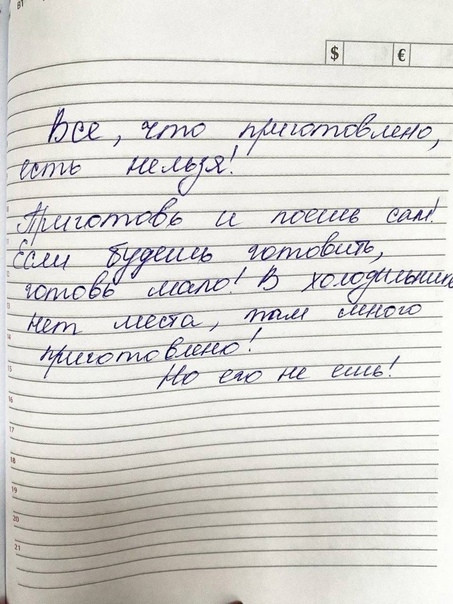 81
$ €
Все, что приготовлено,
есть нельзя!
Приготовь и поешь сам!
Если будешь готовить,
готовь мало! В холодильнике
нет места, там много
приготовлено!
Но его не ешь!
15
16
17
18
19
20
21